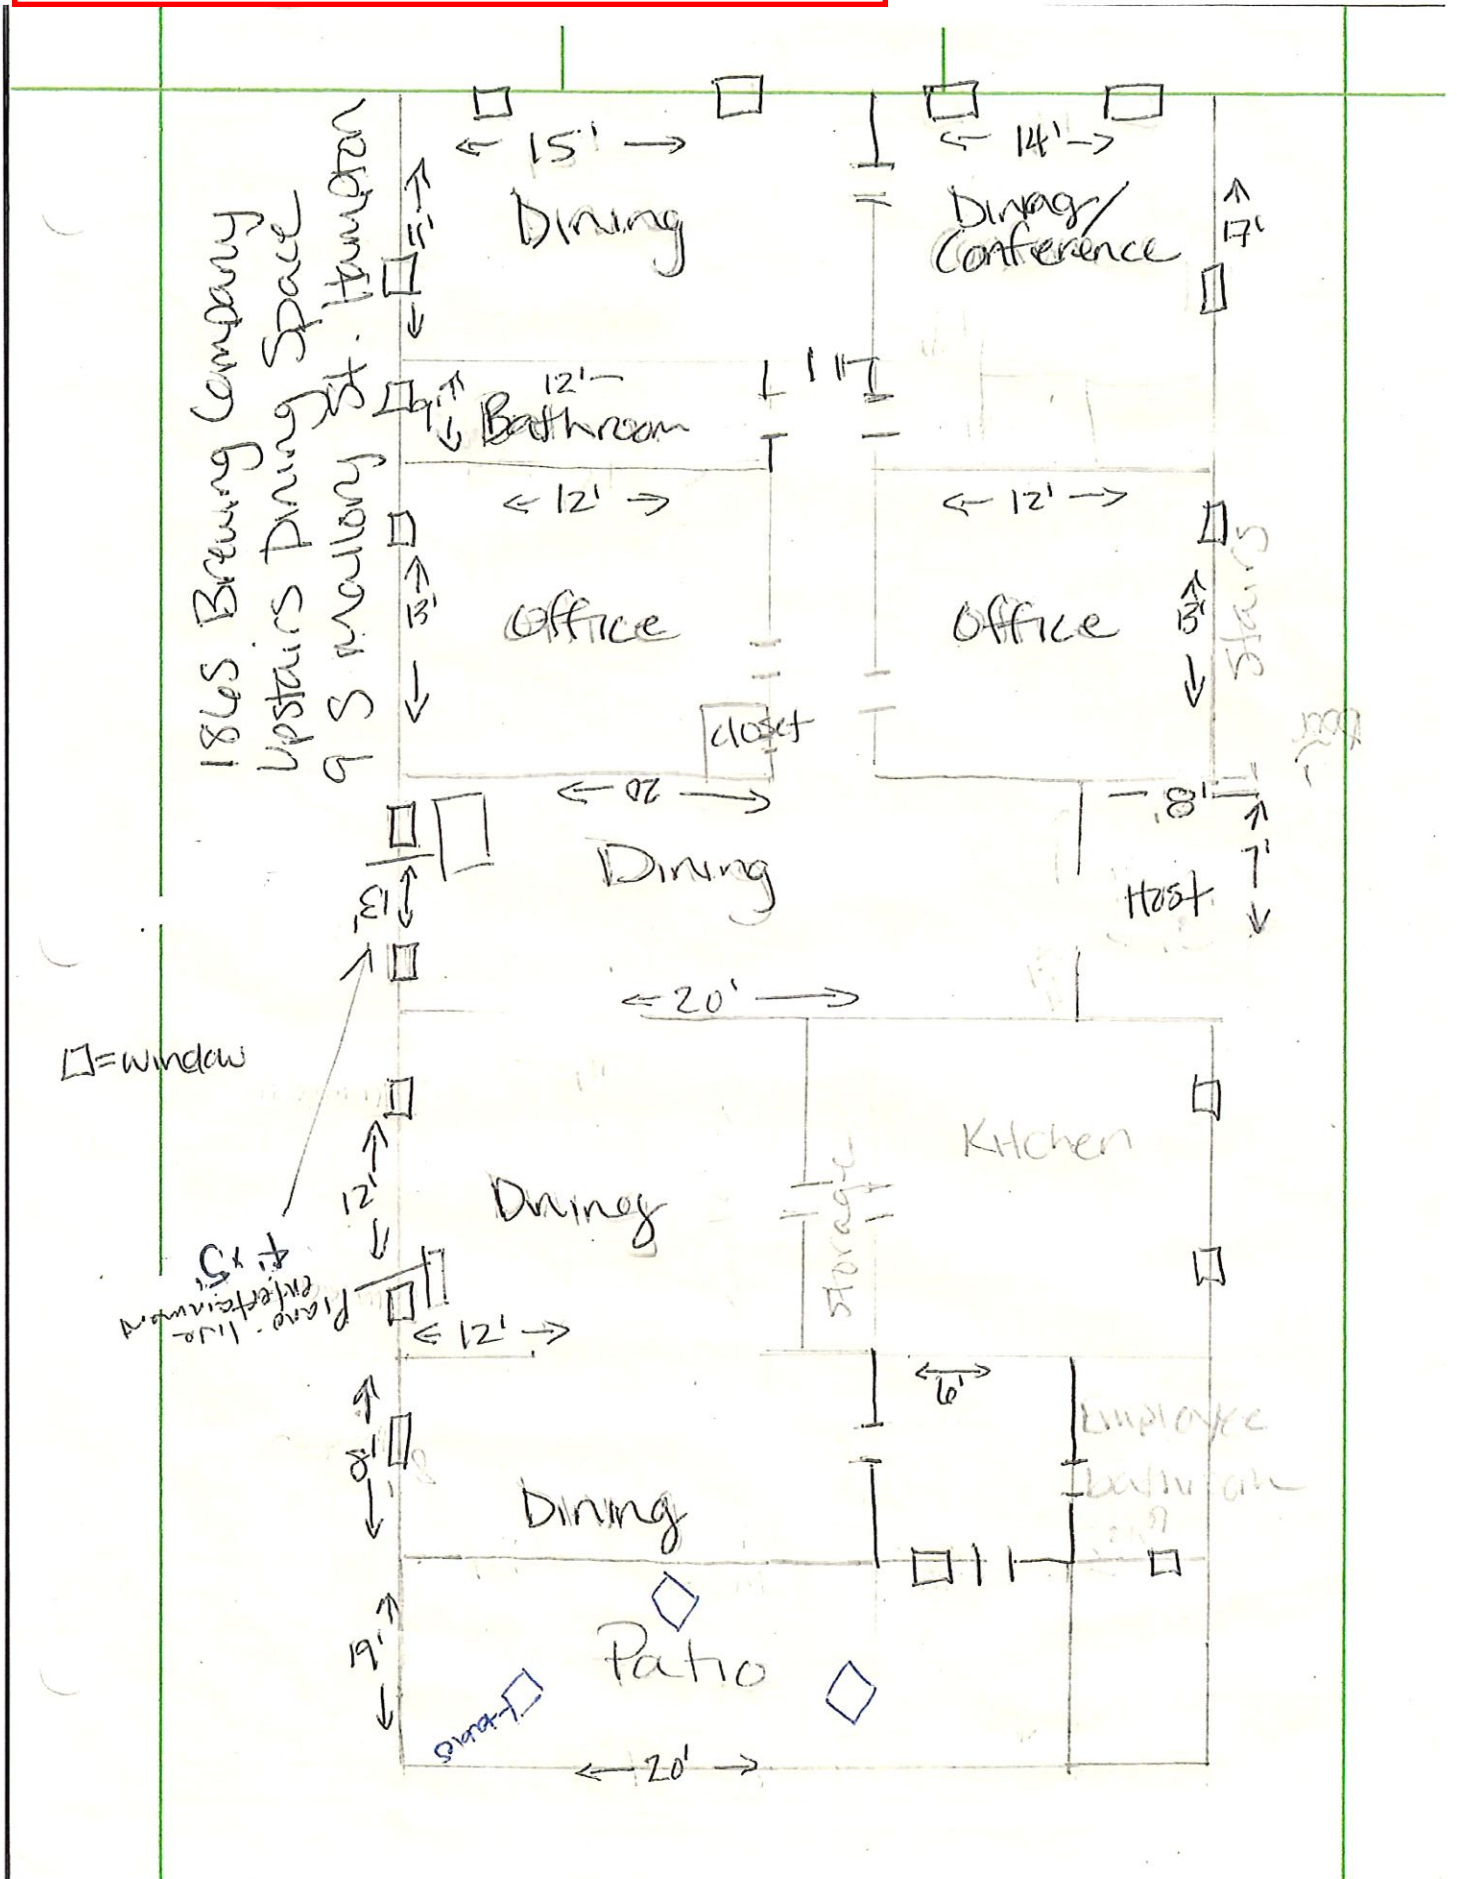 1865 Brewing Company
Upstairs Dining Space
9 S Mallory St. Hampton
15'
14'
11'
Dining
Dining/
Conference
17'
12'
9'
Bathroom
12'
12'
13'
Office
Office
13'
Stairs
closet
20'
8'
Dining
13'
Host
7'
20'
□=window
Kitchen
12'
Dining
Storage
4' x 5'
Piano-live
entertainment
12'
6'
8'
Employee
bathroom
Dining
19'
Patio
tables
20'